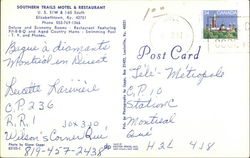 SOUTHERN TRAILS MOTEL & RESTAURANT
U. S. 31W & I-65 South
Elizabethtown, Ky. 42701
Phone 502/769-1366
Deluxe and Economy Rooms - Restaurant Featuring
Pit-B-B-Q and Aged Country Hams - Swimming Pool
T. V. and Phones.
Bague à diamants
Montréal en Direct
Lucette Larivière
C.P. 236
R.R. 1
Wilson's Corner Qué
819-457-2438
Post Card
Télé-Métropole
C.P. 10
Station C
Montréal
Qué
H2L